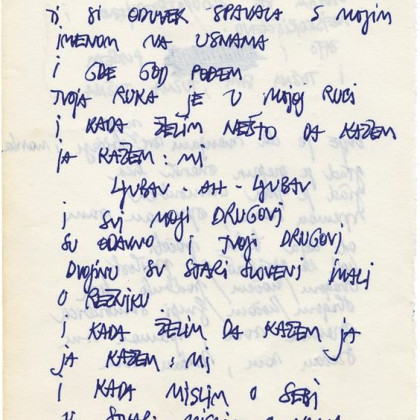 TI SI ODUVEK SPAVALA S MOJIM
IMENOM NA USNAMA
I GDE GOD POĐEM
TVOJA RUKA JE U MOJOJ RUCI
I KADA ŽELIM NEŠTO DA KAŽEM
JA KAŽEM: MI
LJUBAV - AH - LJUBAV
I SVI MOJI DRUGOVI
SU ODAVNO I TVOJI DRUGOVI
DVOJINU SU STARI SLOVENI IMALI
U REČNIKU
I KADA ŽELIM DA KAŽEM JA
JA KAŽEM: MI
I KADA MISLIM O SEBI
STVARI MISLIM O NAMA